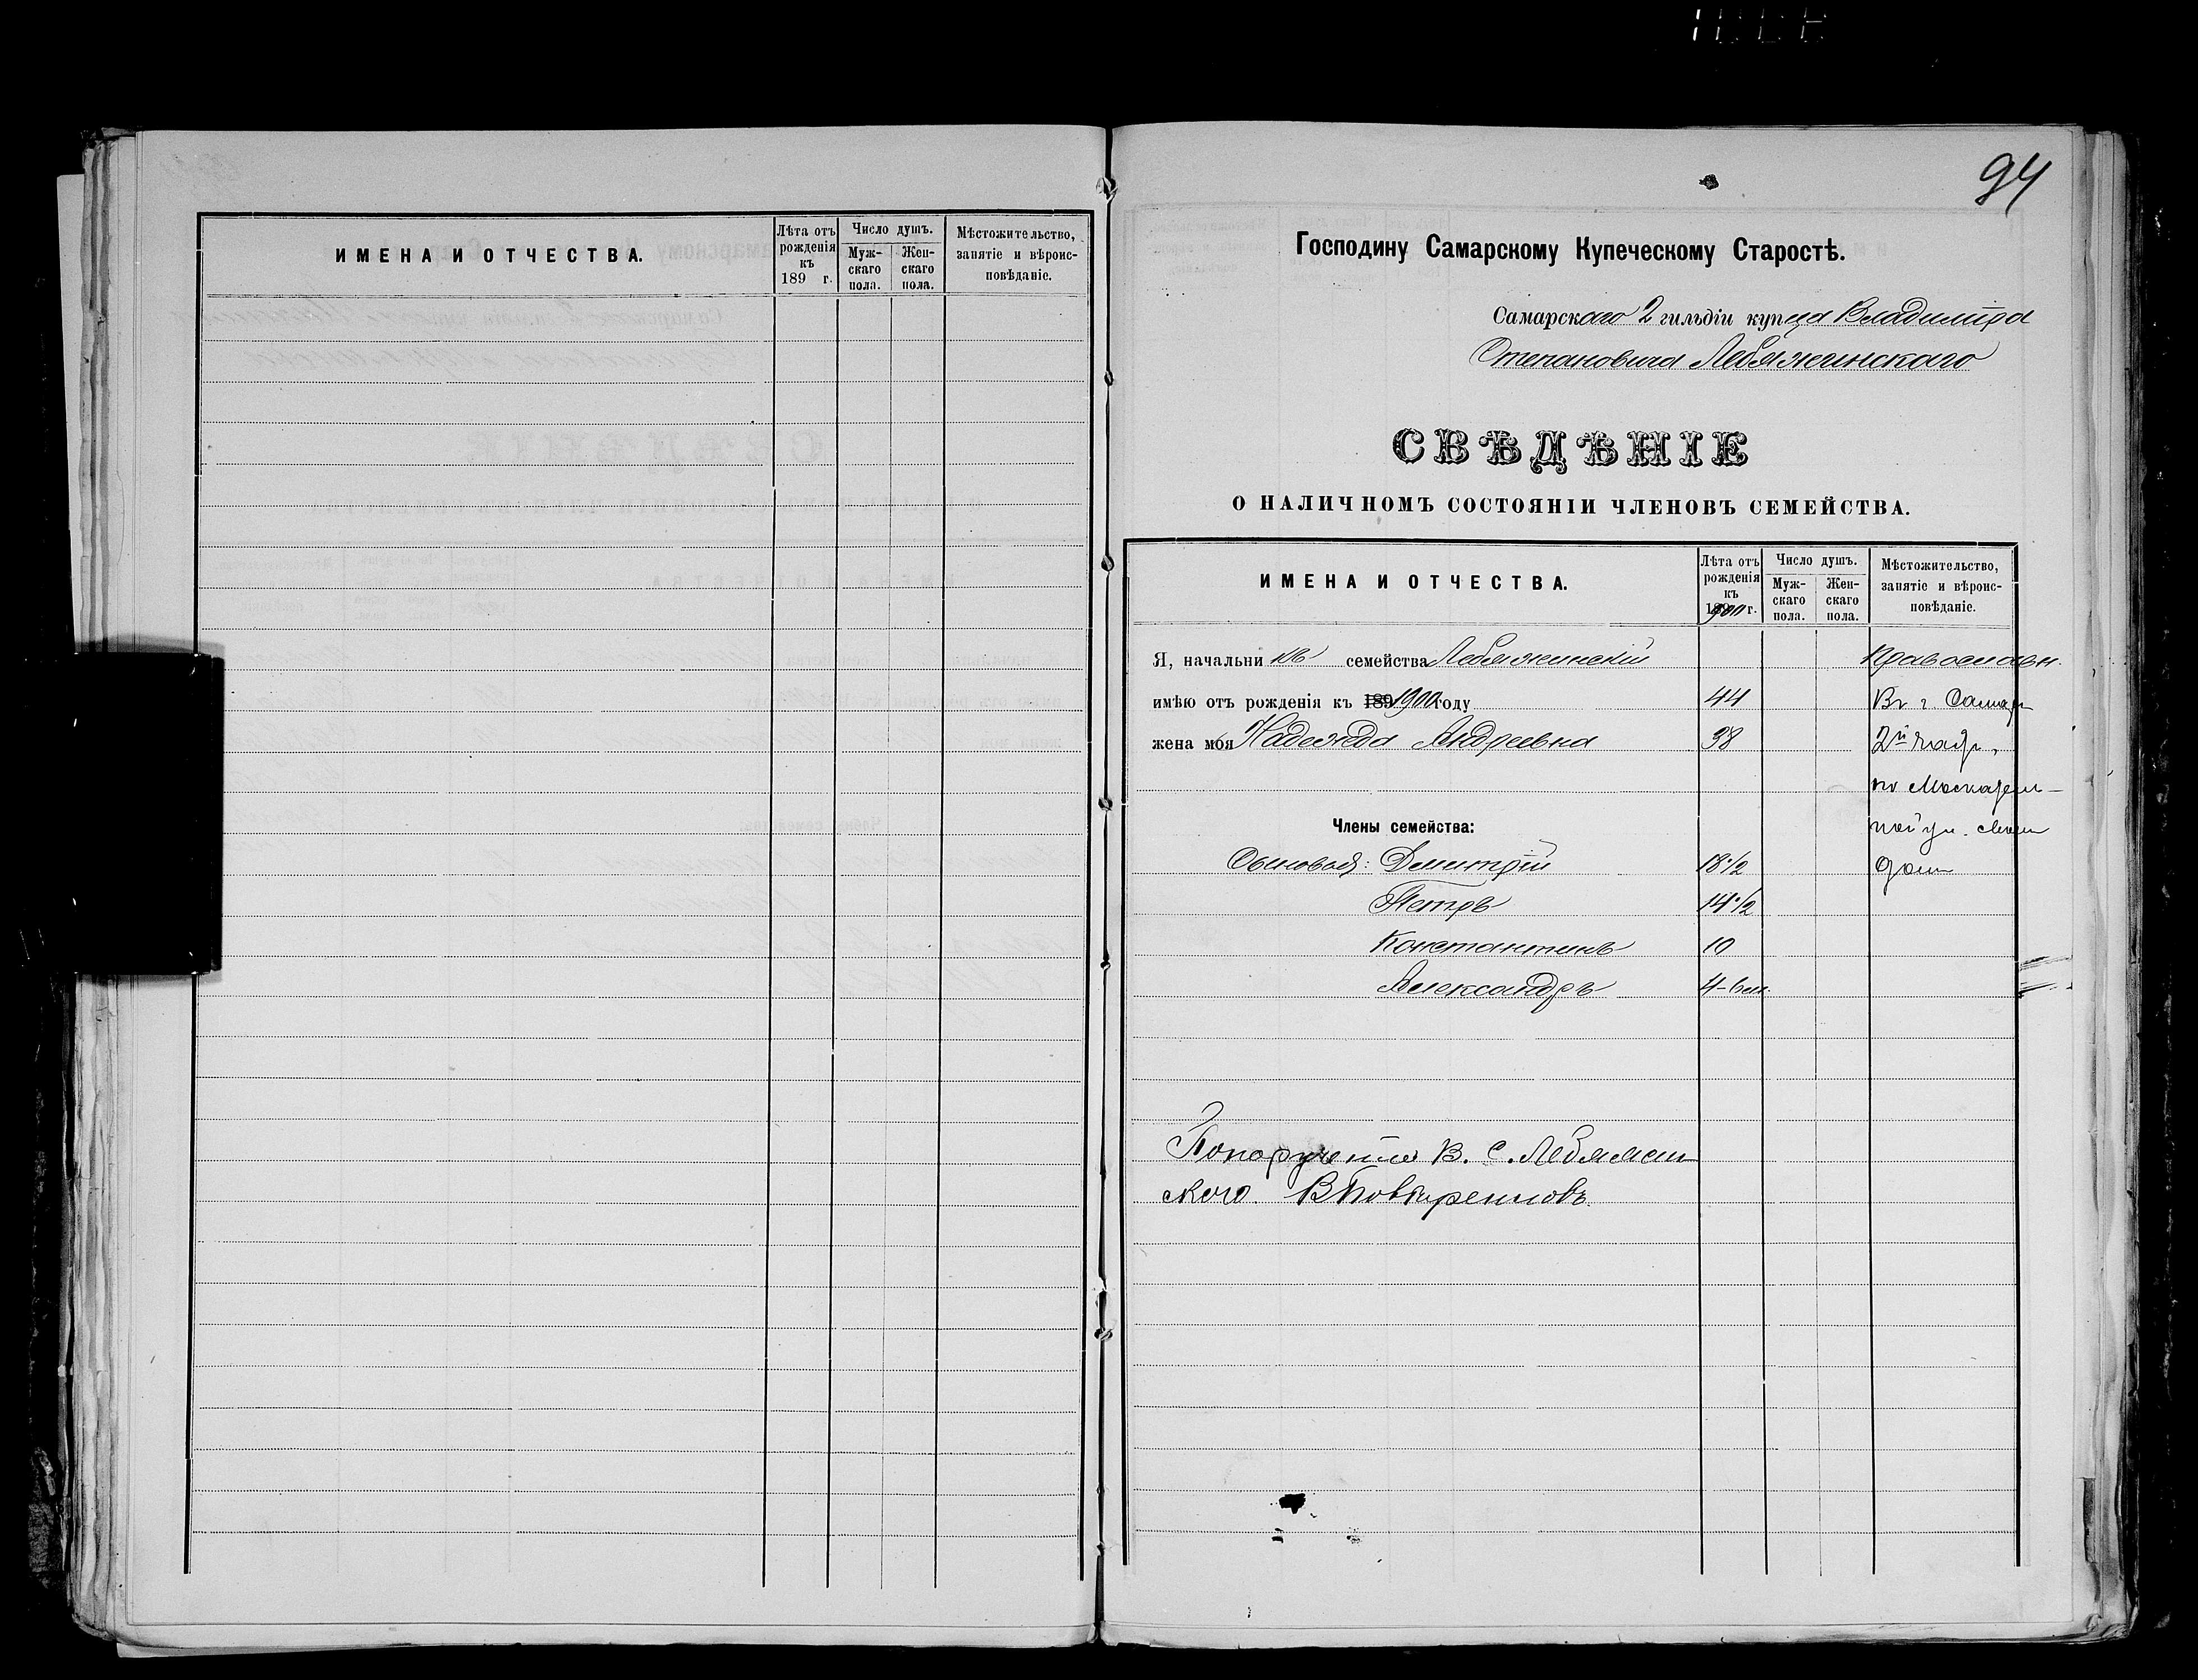 ИМЕНА И ОТЧЕСТВА.
Лѣта отъ рожденія къ 189 г.
Число душъ.
Муж-
скаго
пола.
Жен-
скаго
пола.
Мѣстожительство,
занятіе и вѣроис-
повѣданіе.
94
Господину Самарскому Купеческому Старостѣ.
Самарскаго 2 гильдіи купца Владиміра
Степановича Лебяжинскаго
СВѢДѢНІЕ
О НАЛИЧНОМЪ СОСТОЯНІИ ЧЛЕНОВЪ СЕМЕЙСТВА.
ИМЕНА И ОТЧЕСТВА.
Лѣта отъ
рожденія
къ
1900 г.
Число душъ.
Муж-
скаго
пола.
Жен-
скаго
пола.
Мѣстожительство,
занятіе и вѣроис-
повѣданіе.
Я, начальникъ семейства Лебяжинскій Православн.
имѣю отъ рожденія къ 189 1900 году 44 Въ г. Самарѣ
жена моя Надежда Андреевна 38 2й части,
по Москатель-
Члены семейства: ной ул. свой
Сыновья: Дмитрій 18 1/2 домъ
Петръ 14 1/2
Константинъ 10
Александръ 4-6 м.
По порученію В. С. Лебяжин
скаго. В